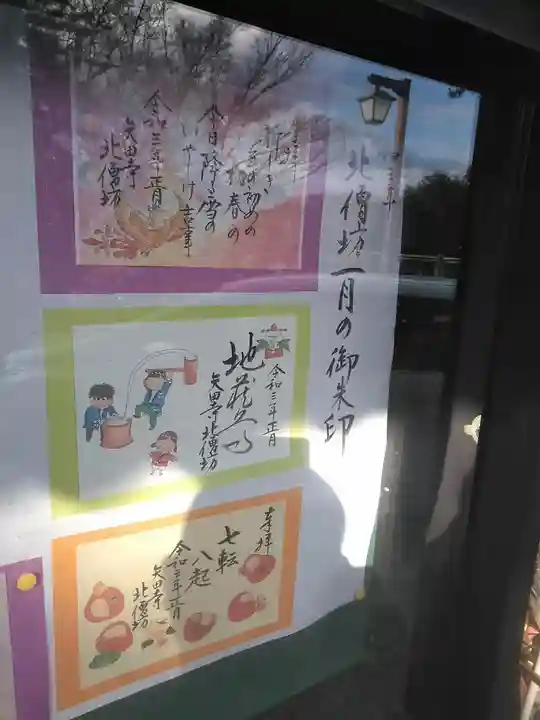 三年
北僧坊 一月の御朱印
新しき
年の初めの
初春の
今日降る雪の
いやけ吉事
令和三年正月
矢田寺
北僧坊
令和三年正月
地蔵尊
矢田寺北僧坊
奉拝
七転
八起
令和三年正月
矢田寺
北僧坊